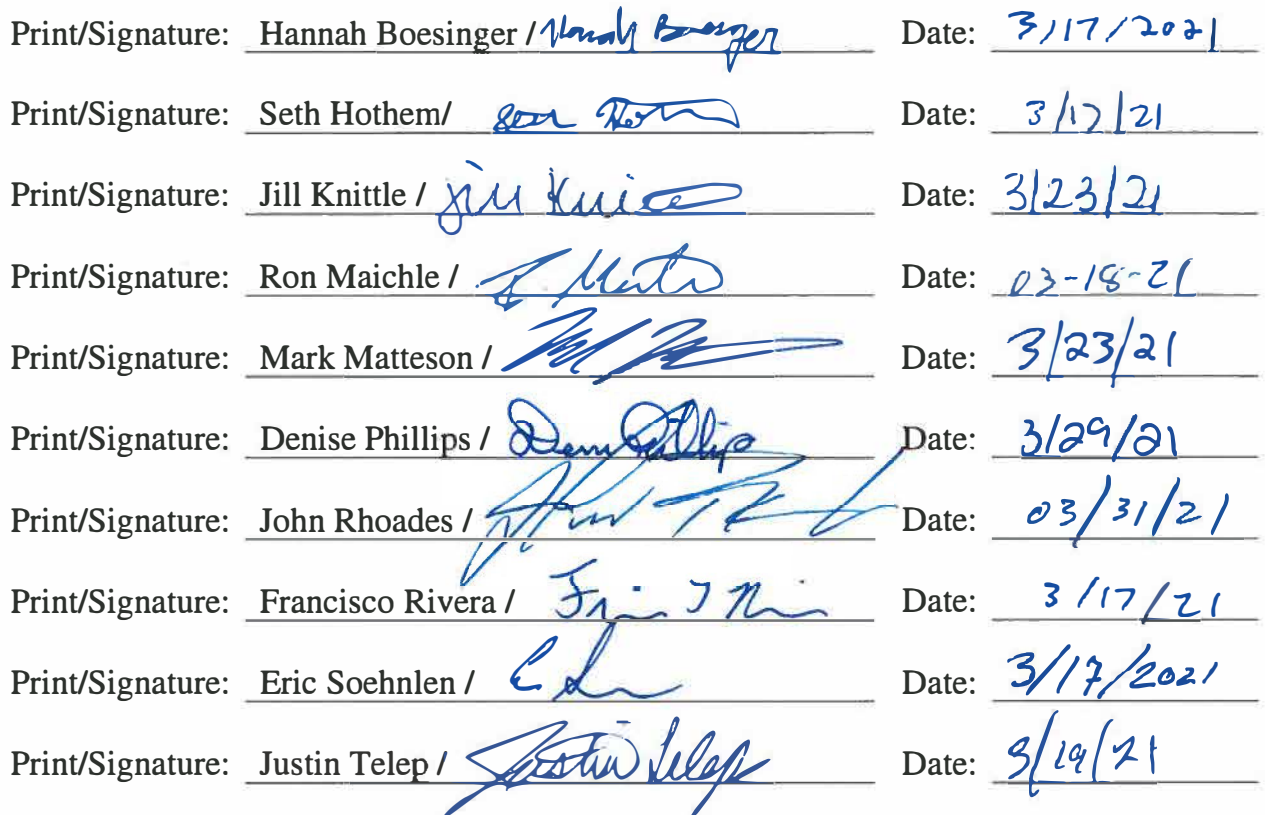 Print/Signature: Hannah Boesinger / Hannah Boesinger Date: 3/17/2021
Print/Signature: Seth Hothem/ Date: 3/17/21
Print/Signature: Jill Knittle / Jill Date: 3/23/21
Print/Signature: Ron Maichle / Date: 03-18-21
Print/Signature: Mark Matteson / Date: 3/23/21
Print/Signature: Denise Phillips / Phillips Date: 3/29/21
Print/Signature: John Rhoades / Date: 03/31/21
Print/Signature: Francisco Rivera / Date: 3/17/21
Print/Signature: Eric Soehnlen / Date: 3/17/2021
Print/Signature: Justin Telep / Justin Telep Date: 3/19/21